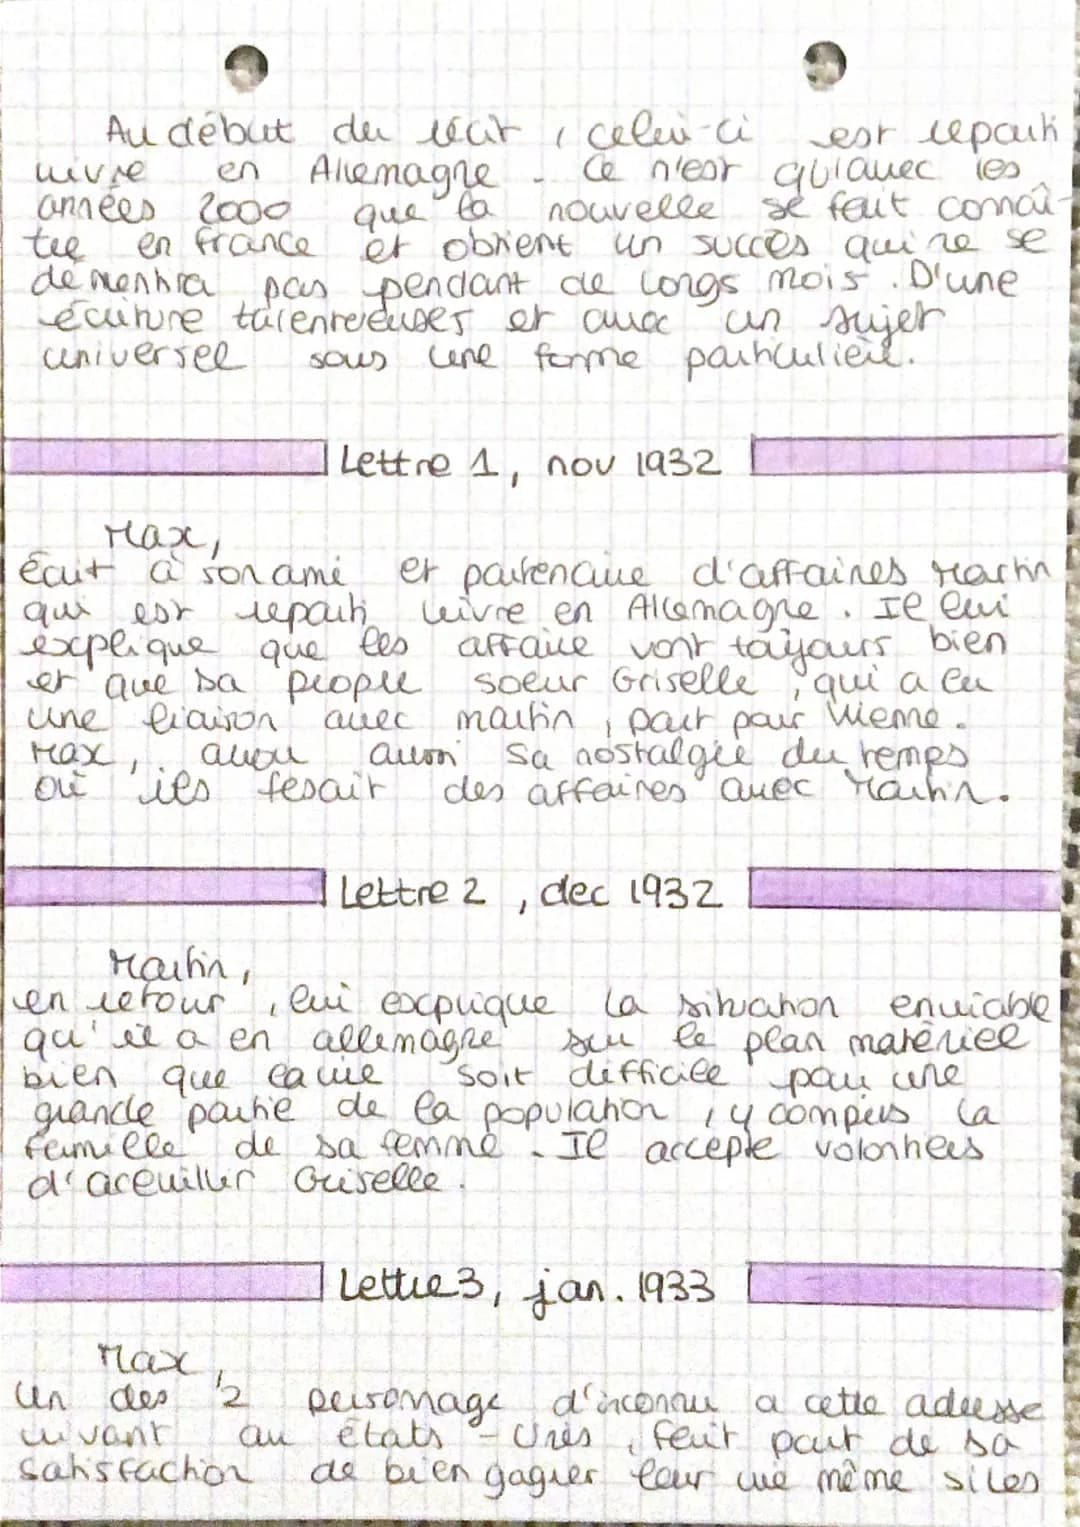 Au début du récit, celui-ci est reparti
vivre en Allemagne. Ce n'est qu'avec les
années 2000 que la nouvelle se fait connaî-
tre en france et obtient un succès qui ne se
dementira pas pendant de longs mois. D'une
écriture talentereuses et avec un sujet
universel sous une forme particulière.
Lettre 1, nov 1932
Max,
Écrit à son ami et partenaire d'affaires Martin
qui est reparti vivre en Allemagne. Il lui
explique que les affaire vont toujours bien
et que sa propre soeur Griselle, qui a eu
une liaison avec martin, part pour Vienne.
Max, avou aussi sa nostalgie du temps
où ils fesait des affaires avec Martin.
Lettre 2, dec 1932
Martin,
en retour, lui explique la situation enviable
qu'il a en allemagne sur le plan matériel
bien que la vie soit difficile pour une
grande partie de la population, y compris la
famille de sa femme. Il accepte volontiers
d'aceuillir Griselle.
Lettre 3, jan. 1933
Max,
Un des 2 personnage d'inconnu a cette adresse
vivant au états-Unis, fait part de sa
satisfaction de bien gagner leur vie même si les